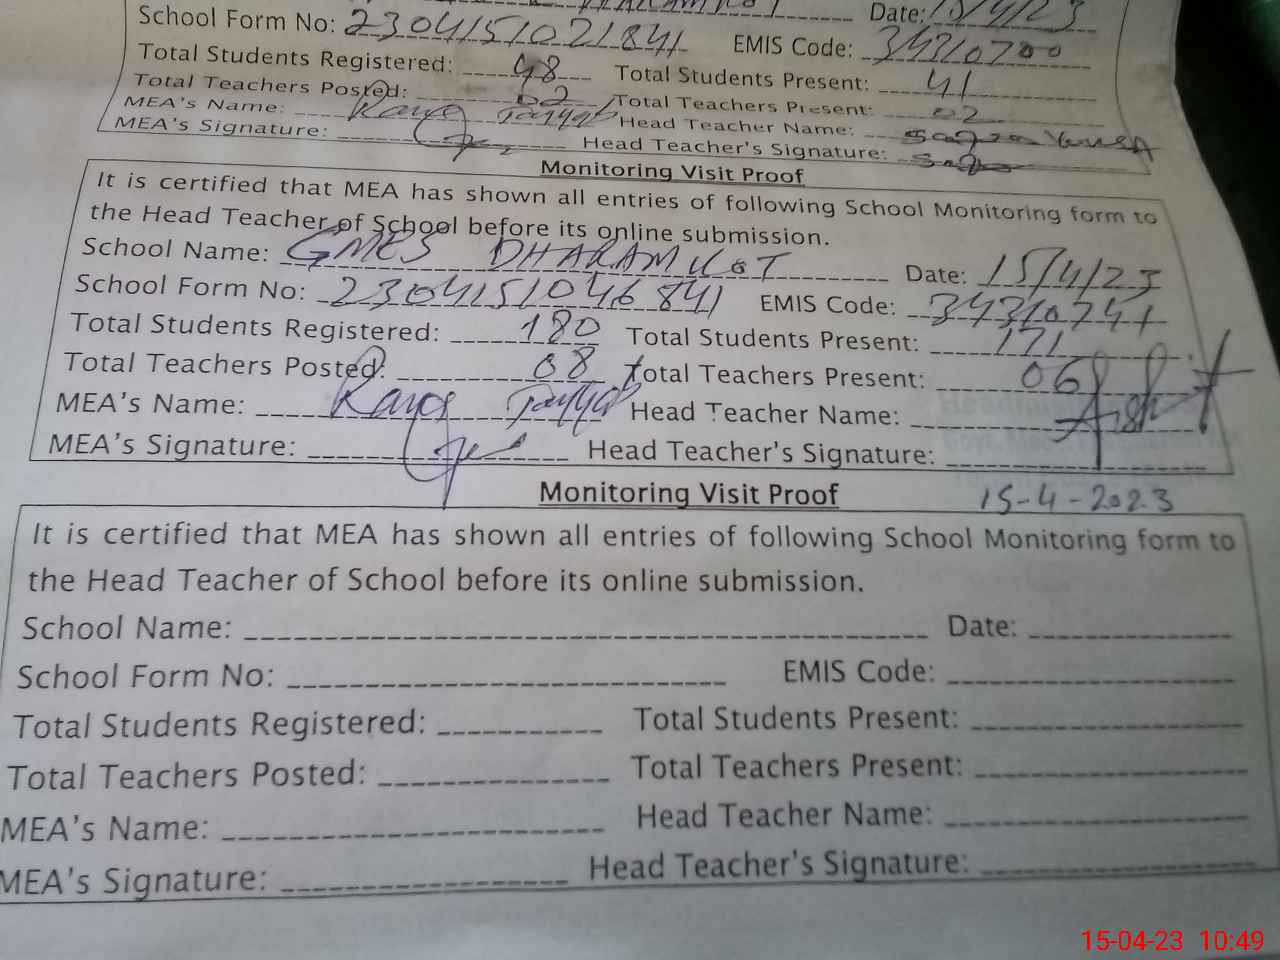 DHARAMKOT Date: 15/4/23
School Form No: 2304151021841 EMIS Code: 34310700
Total Students Registered: 48 Total Students Present: 41
Total Teachers Posted: 02 Total Teachers Present: 02
MEA's Name: Tayyab Head Teacher Name:
MEA's Signature: Head Teacher's Signature:
Monitoring Visit Proof
It is certified that MEA has shown all entries of following School Monitoring form to
the Head Teacher of School before its online submission.
School Name: GMES DHARAMKOT Date: 15/4/23
School Form No: 2304151046841 EMIS Code: 34310741
Total Students Registered: 180 Total Students Present: 171
Total Teachers Posted: 08 Total Teachers Present: 06
MEA's Name: Tayyab Head Teacher Name:
MEA's Signature: Head Teacher's Signature:
Monitoring Visit Proof 15-4-2023
It is certified that MEA has shown all entries of following School Monitoring form to
the Head Teacher of School before its online submission.
School Name: Date:
School Form No: EMIS Code:
Total Students Registered: Total Students Present:
Total Teachers Posted: Total Teachers Present:
MEA's Name: Head Teacher Name:
MEA's Signature: Head Teacher's Signature:
15-04-23 10:49